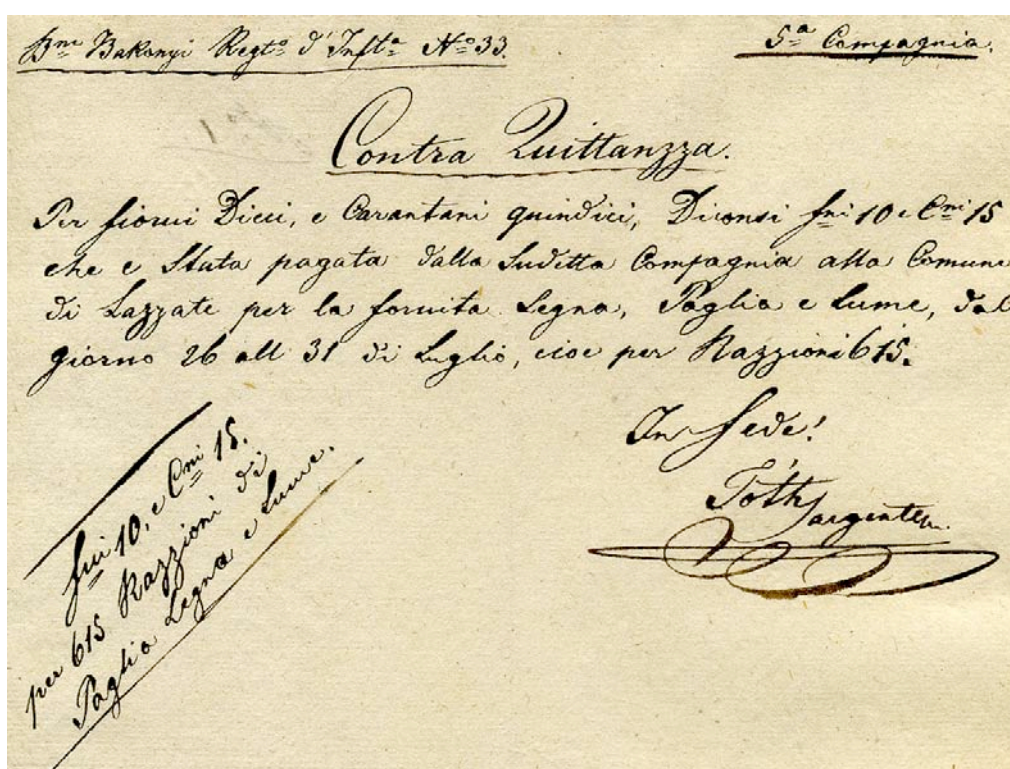 Bne Bakonyi Regto d'Infta No 33.
5a Compagnia.
Contra Quittanzza.
Per fiorni Dieci, e Carantani quindici, Diconsi fni 10 e Cni 15
che e Stata pagata dalla Suditta Compagnia alla Comune
di Lazzate per la fornita Legna, Paglia e Lume, dal
giorno 26 all 31 di Luglio, cioe per Razzioni 615.
In fede!
Tóth
Sargente
fni 10. e Cni 15.
per 615 Razzioni di
Paglia Legna e Lume.